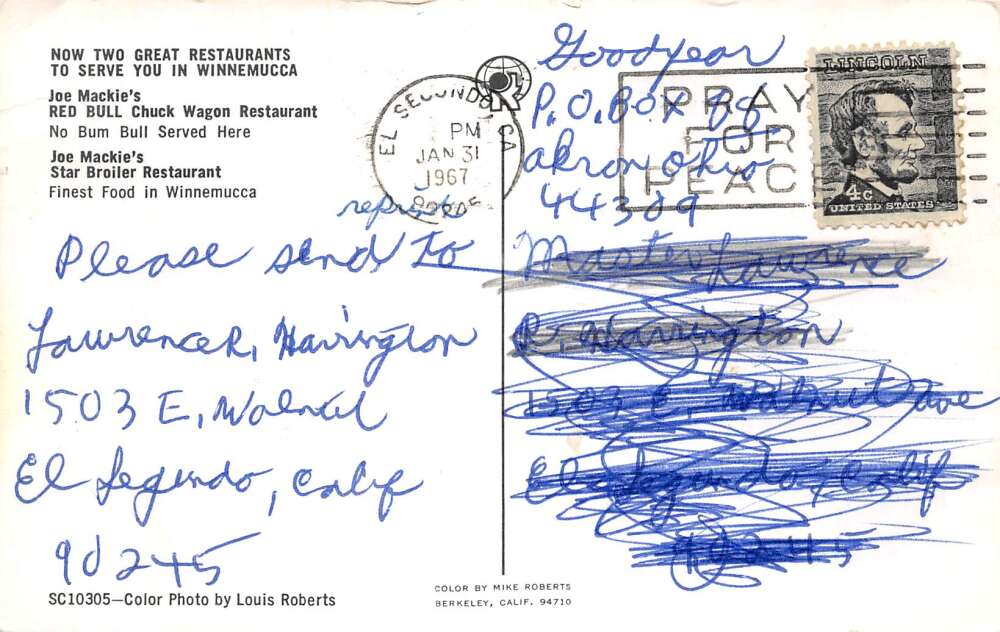 NOW TWO GREAT RESTAURANTS
TO SERVE YOU IN WINNEMUCCA
Joe Mackie's
RED BULL Chuck Wagon Restaurant
No Bum Bull Served Here
Joe Mackie's
Star Broiler Restaurant
Finest Food in Winnemucca
EL SEGUNDO, CA
PM
JAN 31
1967
90245
PRAY
FOR
PEACE
LINCOLN
4c
UNITED STATES
Goodyear
P.O. Box
Akron Ohio
44309
Please send to
Lawrence R. Harrington
1503 E. Walnut
El Segundo, Calif
90245
Master Lawrence
R. Harrington
1503 E. Walnut Ave
El Segundo, Calif
90245
SC10305—Color Photo by Louis Roberts
COLOR BY MIKE ROBERTS
BERKELEY, CALIF. 94710